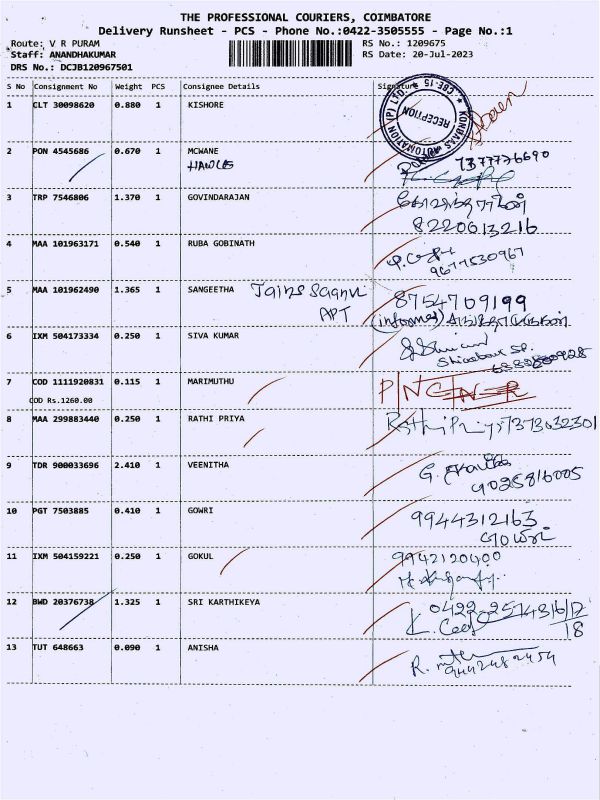 THE PROFESSIONAL COURIERS, COIMBATORE
Delivery Runsheet - PCS - Phone No.:0422-3505555 - Page No.:1
Route: V R PURAM
RS No.: 1209675
Staff: ANANDHAKUMAR
RS Date: 20-Jul-2023
DRS No.: DCJB120967501
S No Consignment No Weight PCS Consignee Details Signature
1 CLT 30098620 0.880 1 KISHORE
KONDAAS AUTOMATION (P) LTD. CBE-15
RECEPTION
2 PON 4545686 0.670 1 MCWANE
HAWCS
7377776690
3 TRP 7546806 1.370 1 GOVINDARAJAN
8220613216
4 MAA 101963171 0.540 1 RUBA GOBINATH
9677530967
5 MAA 101962490 1.365 1 SANGEETHA
APT
8754709199
(informed)
6 IXM 504173334 0.250 1 SIVA KUMAR
7 COD 1111920831 0.115 1 MARIMUTHU
COD Rs.1260.00
8 MAA 299883440 0.250 1 RATHI PRIYA RathiPriya 7373632301
9 TDR 900033696 2.410 1 VEENITHA
9025816005
10 PGT 7503885 0.410 1 GOWRI
9944312163
11 IXM 504159221 0.250 1 GOKUL 9942120400
12 BWD 20376738 1.325 1 SRI KARTHIKEYA
0422-2574316/17
18
13 TUT 648663 0.090 1 ANISHA
9442482454